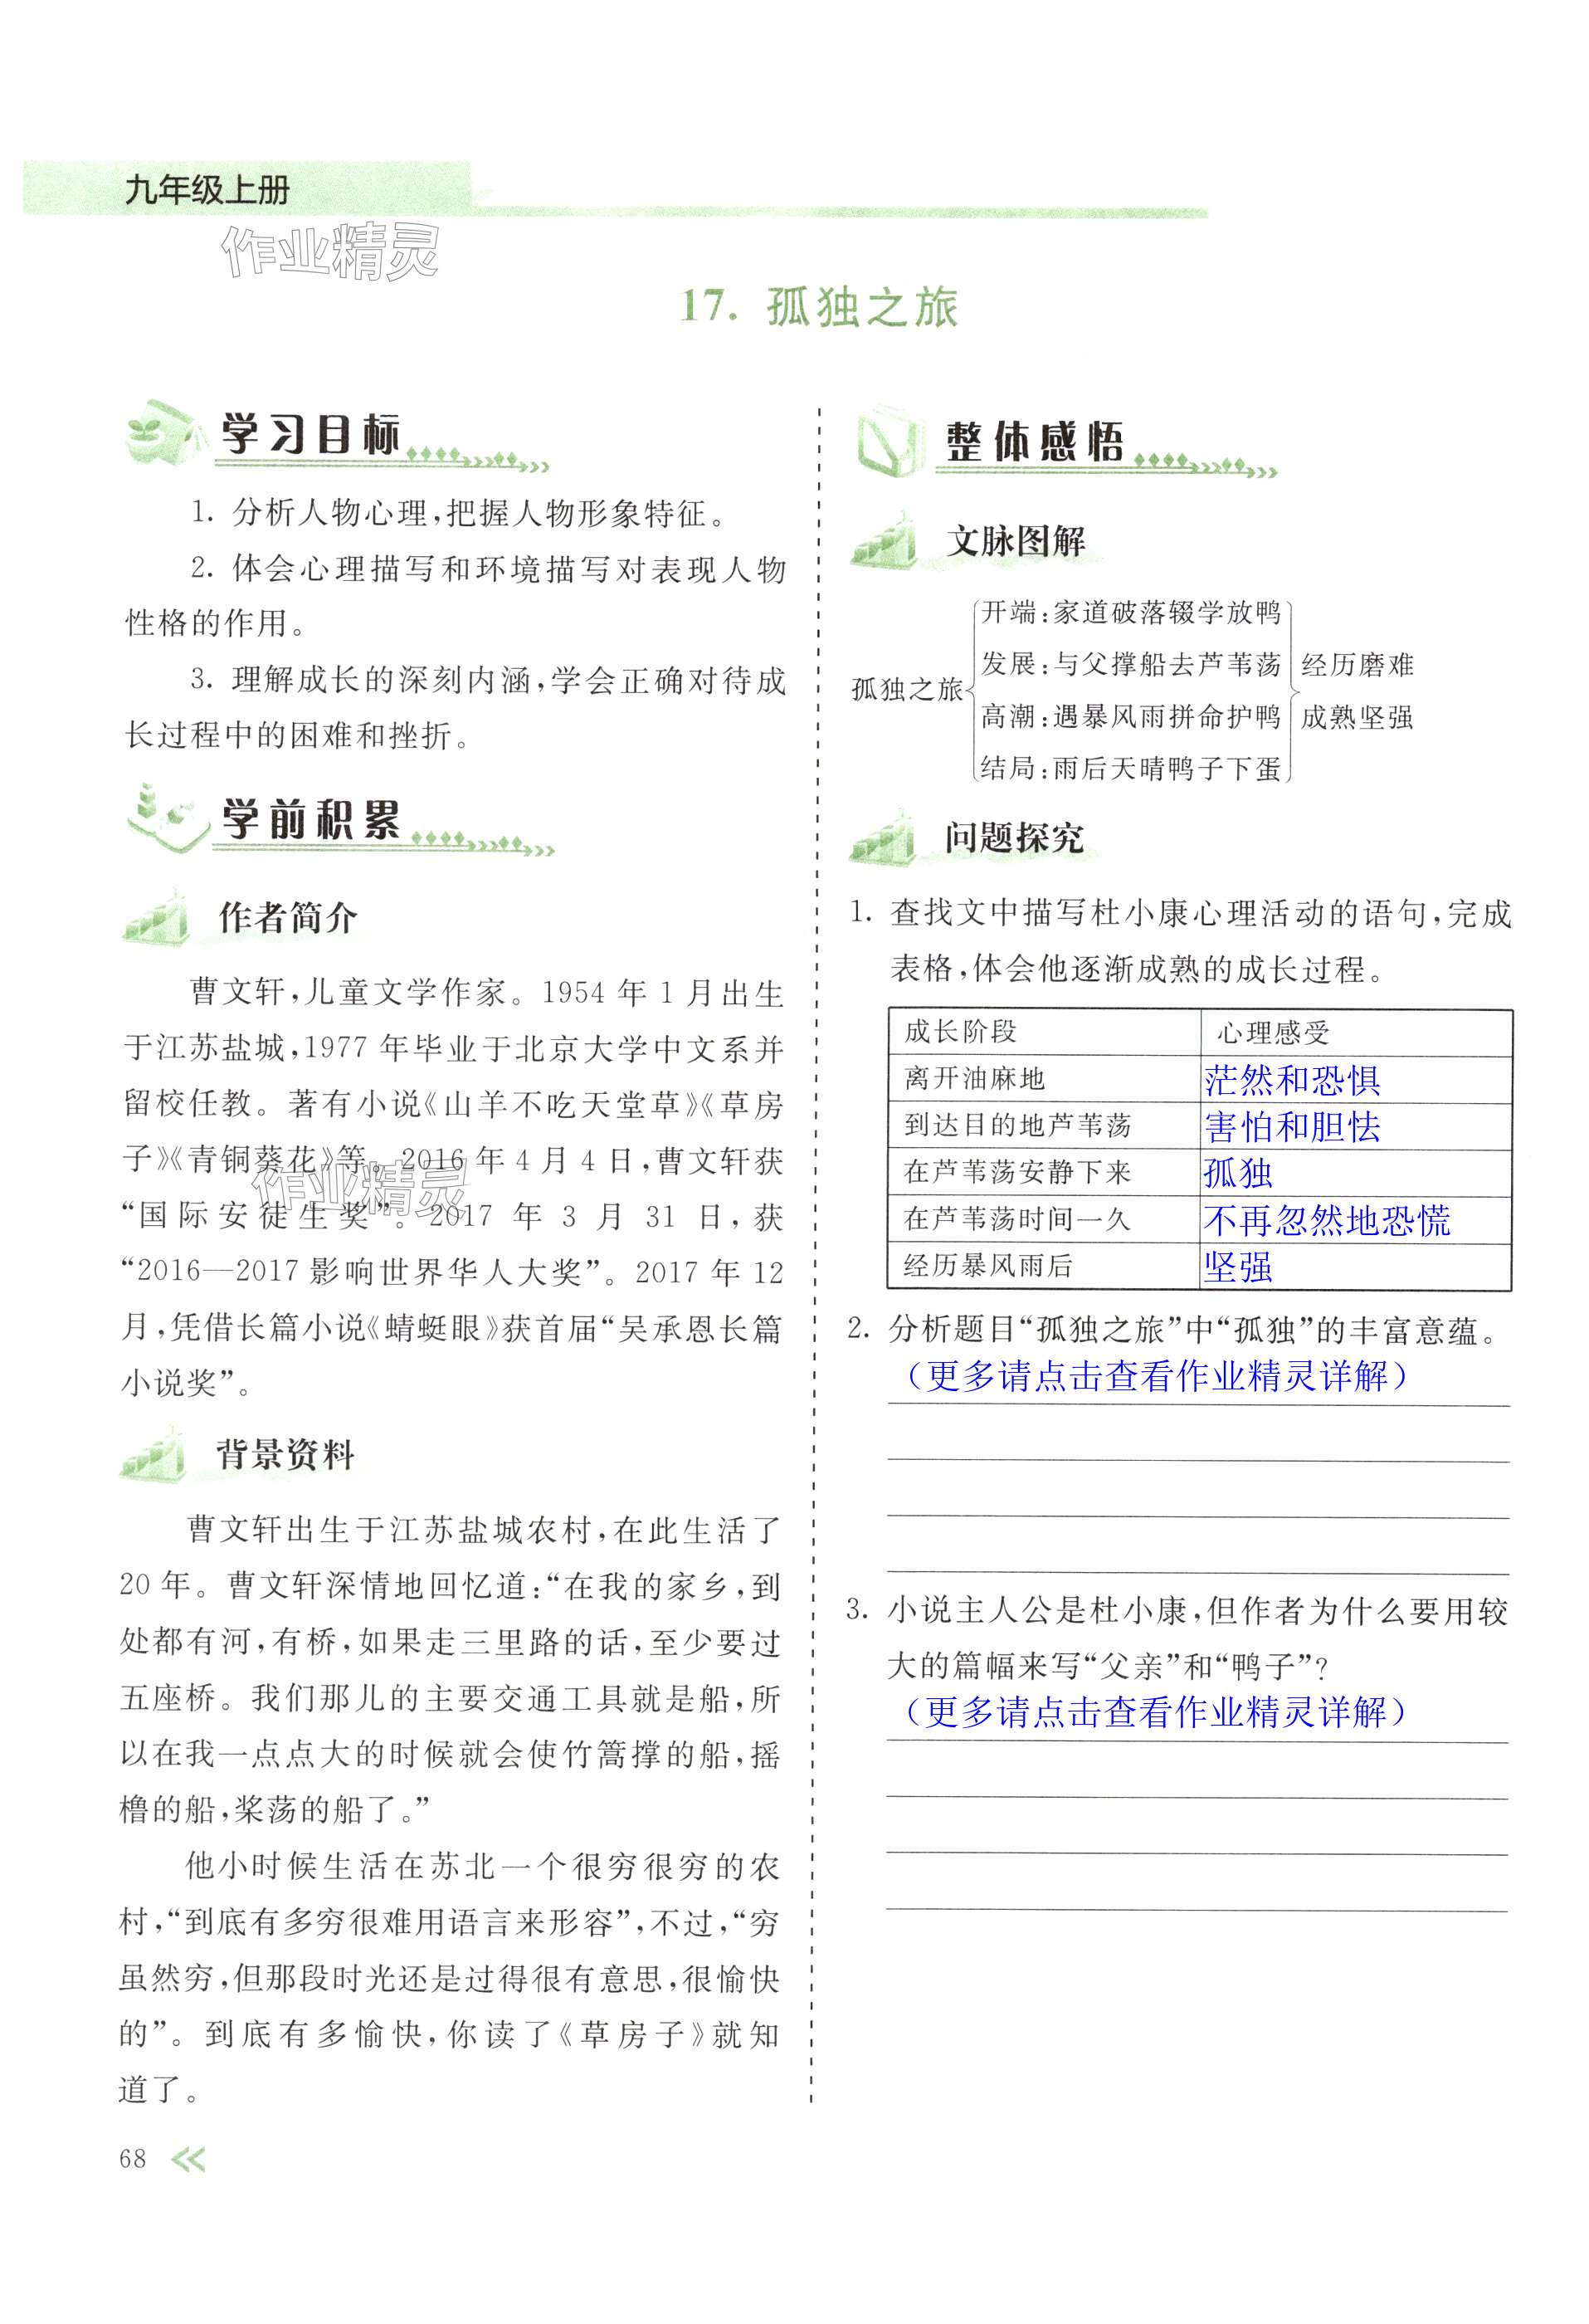 九年级上册
作业精灵
17. 孤独之旅
学习目标
1. 分析人物心理,把握人物形象特征。
2. 体会心理描写和环境描写对表现人物
性格的作用。
3. 理解成长的深刻内涵,学会正确对待成
长过程中的困难和挫折。
学前积累
作者简介
曹文轩,儿童文学作家。1954 年 1 月出生
于江苏盐城,1977 年毕业于北京大学中文系并
留校任教。著有小说《山羊不吃天堂草》《草房
子》《青铜葵花》等。2016 年 4 月 4 日,曹文轩获
作业精灵
“国际安徒生奖”。2017 年 3 月 31 日,获
“2016—2017 影响世界华人大奖”。2017 年 12
月,凭借长篇小说《蜻蜓眼》获首届“吴承恩长篇
小说奖”。
背景资料
曹文轩出生于江苏盐城农村,在此生活了
20 年。曹文轩深情地回忆道:“在我的家乡,到
处都有河,有桥,如果走三里路的话,至少要过
五座桥。我们那儿的主要交通工具就是船,所
以在我一点点大的时候就会使竹篙撑的船,摇
橹的船,桨荡的船了。”
他小时候生活在苏北一个很穷很穷的农
村,“到底有多穷很难用语言来形容”,不过,“穷
虽然穷,但那段时光还是过得很有意思,很愉快
的”。到底有多愉快,你读了《草房子》就知
道了。
68
整体感悟
文脉图解
孤独之旅
开端:家道破落辍学放鸭
发展:与父撑船去芦苇荡
高潮:遇暴风雨拼命护鸭
结局:雨后天晴鸭子下蛋
经历磨难
成熟坚强
问题探究
1. 查找文中描写杜小康心理活动的语句,完成
表格,体会他逐渐成熟的成长过程。
成长阶段 心理感受
离开油麻地 茫然和恐惧
到达目的地芦苇荡 害怕和胆怯
在芦苇荡安静下来 孤独
在芦苇荡时间一久 不再忽然地恐慌
经历暴风雨后 坚强
2. 分析题目“孤独之旅”中“孤独”的丰富意蕴。
（更多请点击查看作业精灵详解）
3. 小说主人公是杜小康,但作者为什么要用较
大的篇幅来写“父亲”和“鸭子”?
（更多请点击查看作业精灵详解）